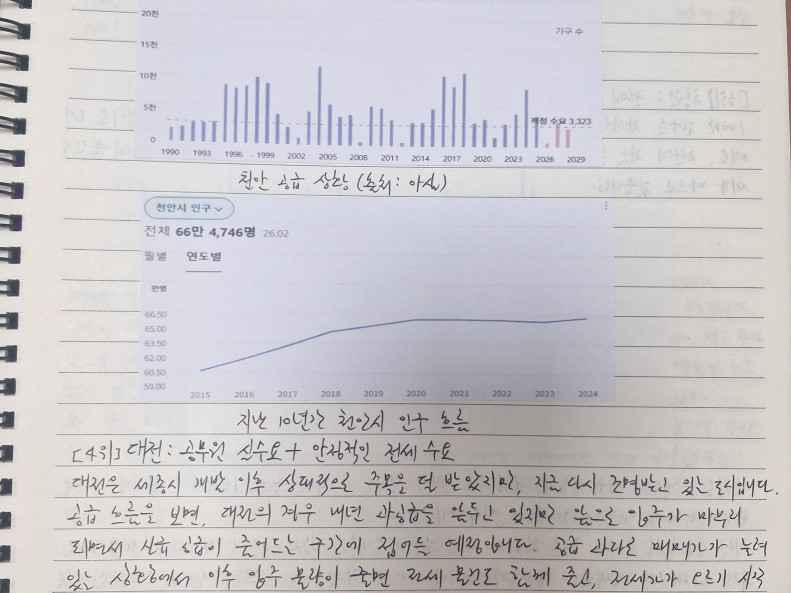 20천
15천
가구 수
10천
5천
적정 수요 3,323
0
1990 1993 1996 1999 2002 2005 2008 2011 2014 2017 2020 2023 2026 2029
천안 공급 상황 (출처: 아실)
천안시 인구
전체 66만 4,746명 '26.02
월별 연도별
만명
66.50
65.00
63.50
62.00
60.50
59.00
2015 2016 2017 2018 2019 2020 2021 2022 2023 2024
지난 10년간 천안시 인구 흐름
[4위] 대전: 공무원 실수요 + 안정적인 전세 수요
대전은 세종시 개발 이후 상대적으로 주목을 덜 받았지만, 지금 다시 조명받고 있는 도시입니다.
공급 흐름을 보면, 대전의 경우 내년 과잉공급을 앞두고 있지만 앞으로 입주가 마무리
되면서 신규 공급이 줄어드는 구간에 접어들 예정입니다. 공급 과다로 매매가가 눌려
있는 상황에서 이후 입주 물량이 줄면 전세 물건도 함께 줄고, 전세가가 오르기 시작